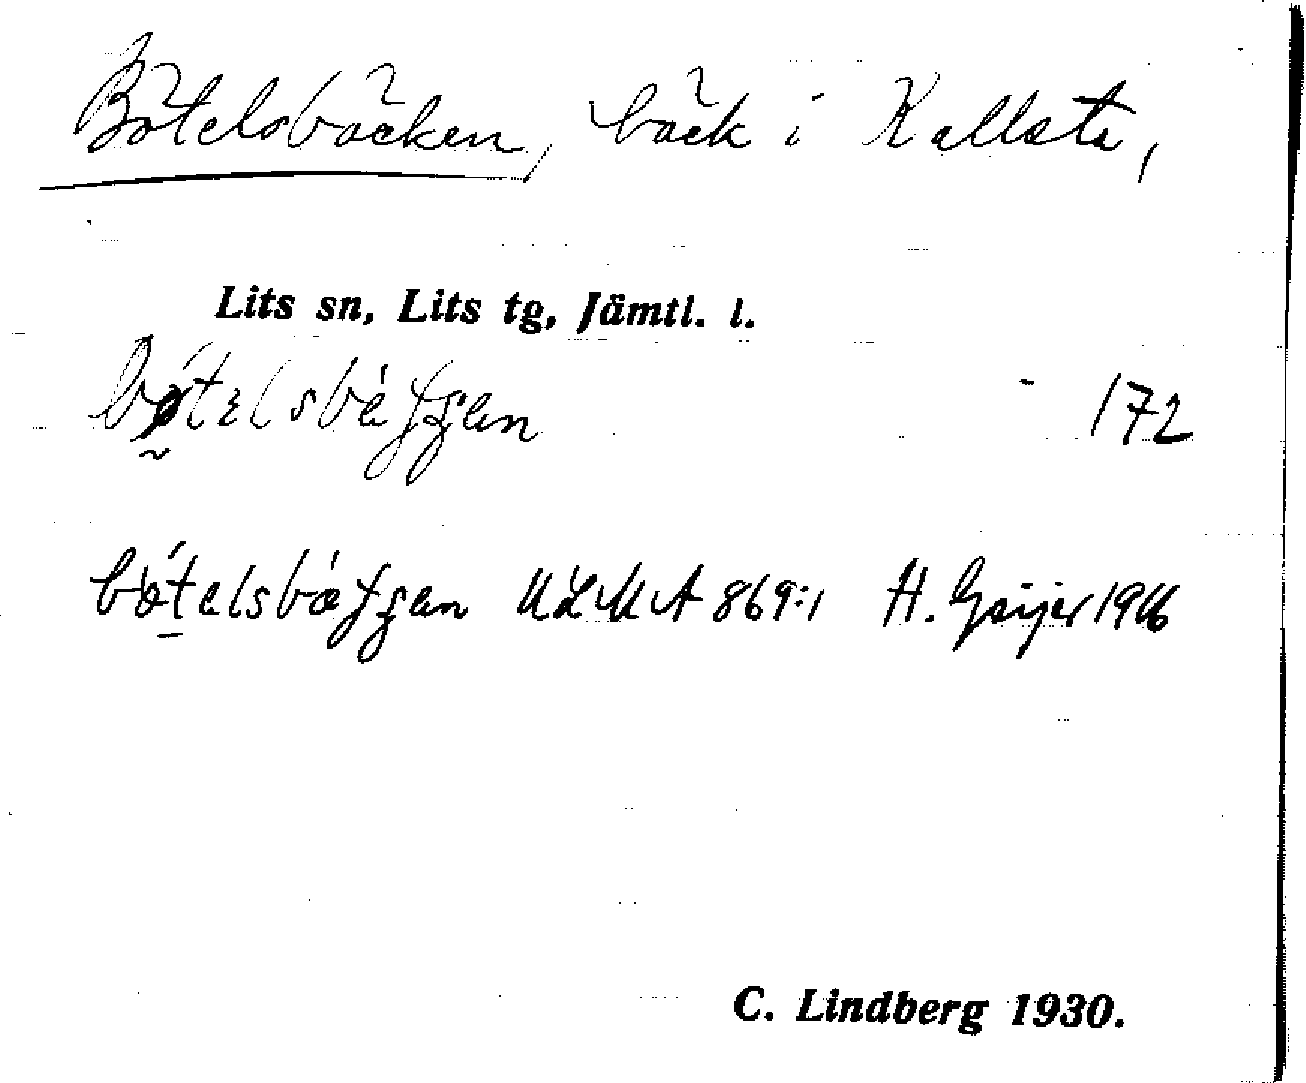 Bötelsbäcken, bäck i Kallsta,
Lits sn, Lits tg, Jämtl. l.
172
ULMA 869:1 H. Geijer 1916
C. Lindberg 1930.